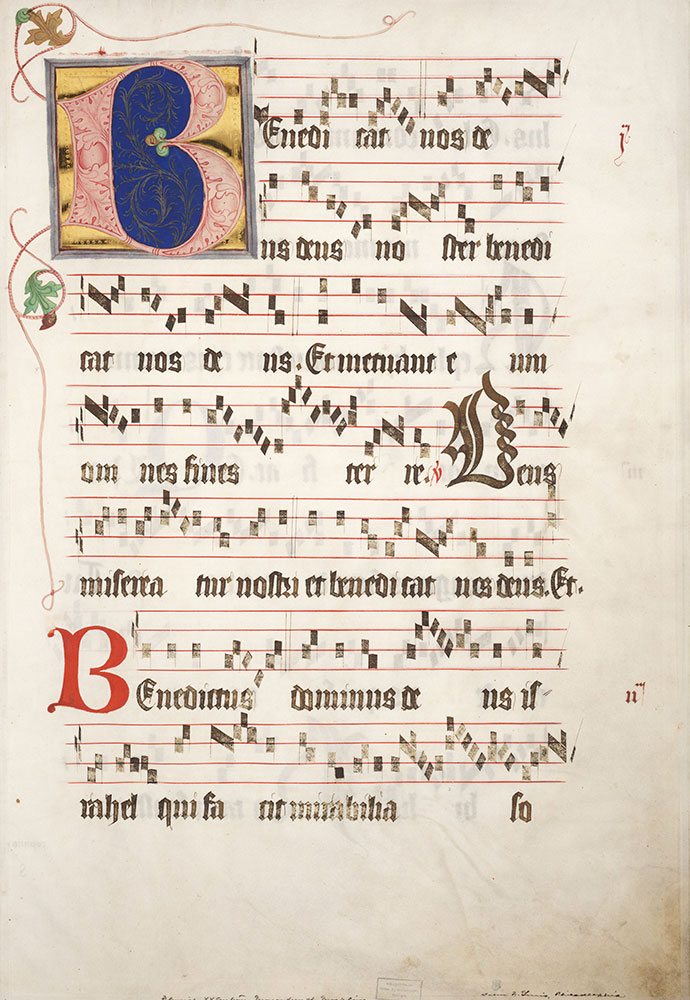 BEnedi cat nos de
us deus no ster benedi
cat nos de us. Et metuant e um
om nes fines ter re ℣ Deus
miserea tur nostri et benedicat nos deus. Et.
BEnedictus dominus de us is-
rahel qui fa cit mirabilia so